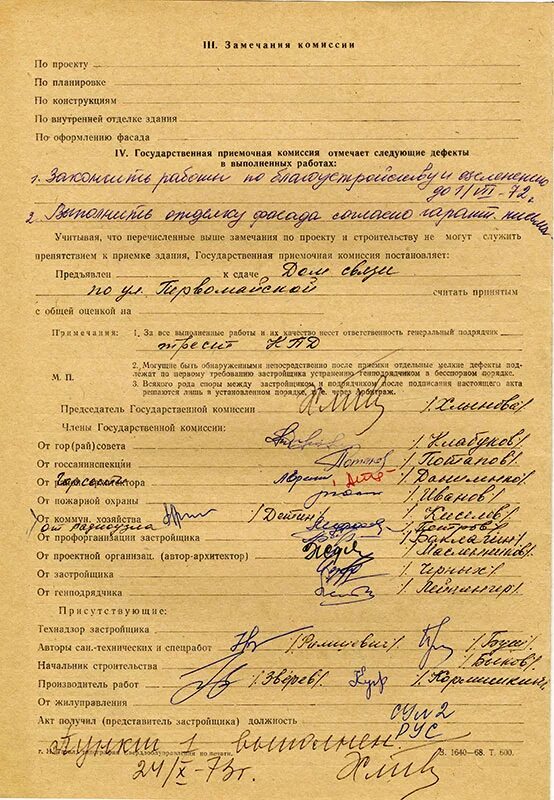 III. Замечания комиссии
По проекту
По планировке
По конструкциям
По внутренней отделке здания
По оформлению фасада
IV. Государственная приемочная комиссия отмечает следующие дефекты
в выполненных работах:
1. Закончить работы по благоустройству и озеленению
до 1/VII-72 г.
2. Выполнить отделку фасада согласно гарант. письма
Учитывая, что перечисленные выше замечания по проекту и строительству не могут служить
препятствием к приемке здания, Государственная приемочная комиссия постановляет:
Предъявлен к сдаче Дом связи
по ул. Первомайской считать принятым
с общей оценкой на
Примечания: 1. За все выполненные работы и их качество несет ответственность генеральный подрядчик
трест КПД
2. Могущие быть обнаруженными непосредственно после приемки отдельные мелкие дефекты под-
лежат по первому требованию застройщика устранению генподрядчиком в бесспорном порядке.
М. П.
3. Всякого рода споры между застройщиком и подрядчиком после подписания настоящего акта
решаются лишь в установленном порядке, т. е. через арбитраж.
Председатель Государственной комиссии
Члены Государственной комиссии:
От гор(рай)совета /Клабуков/
От госсанинспекции /Потапов/
От архитектора /Даниленко/
От пожарной охраны /Иванов/
От коммун. хозяйства /Детин/ /Киселов/
от радиоузла /Петров/
От профорганизации застройщика /Баклачин/
От проектной организац. (автор-архитектор) /Масленников/
От застройщика /Черных/
От генподрядчика
Присутствующие:
Технадзор застройщика
Авторы сан.-технических и спецработ
Начальник строительства /Быков/
Производитель работ /Зверев/
От жилуправления
Акт получил (представитель застройщика) должность СУМ2
РУС
Пункт 1 выполнен.
З. 1640—68. Т. 600.
24/X-73г.